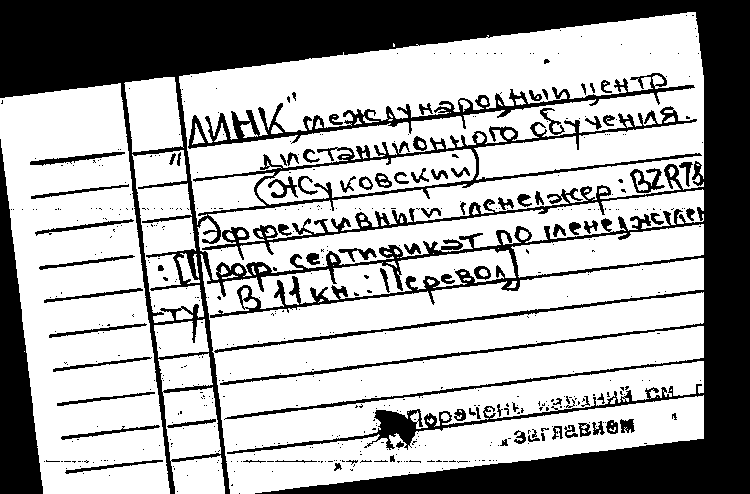 "ЛИНК", международный центр
дистанционного обучения.
(Жуковский)
Эффективный менеджер: BZR78
: [Проф. сертификат по менеджмен
ту: В 11 кн.: Перевод]
Перечень изданий см. п
заглавием